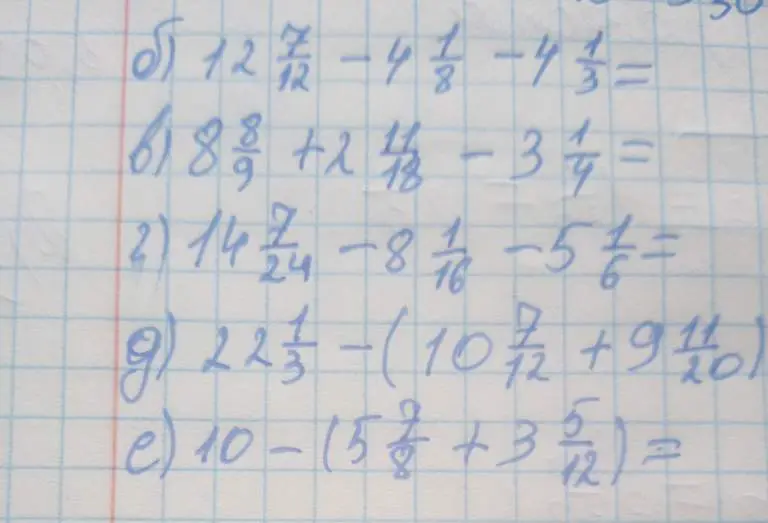 б) 12 7/12 - 4 1/8 - 4 1/3 =
в) 8 8/9 + 2 11/18 - 3 1/4 =
г) 14 7/24 - 8 1/16 - 5 1/6 =
д) 22 1/3 - (10 7/12 + 9 11/20)
е) 10 - (5 7/8 + 3 5/12) =